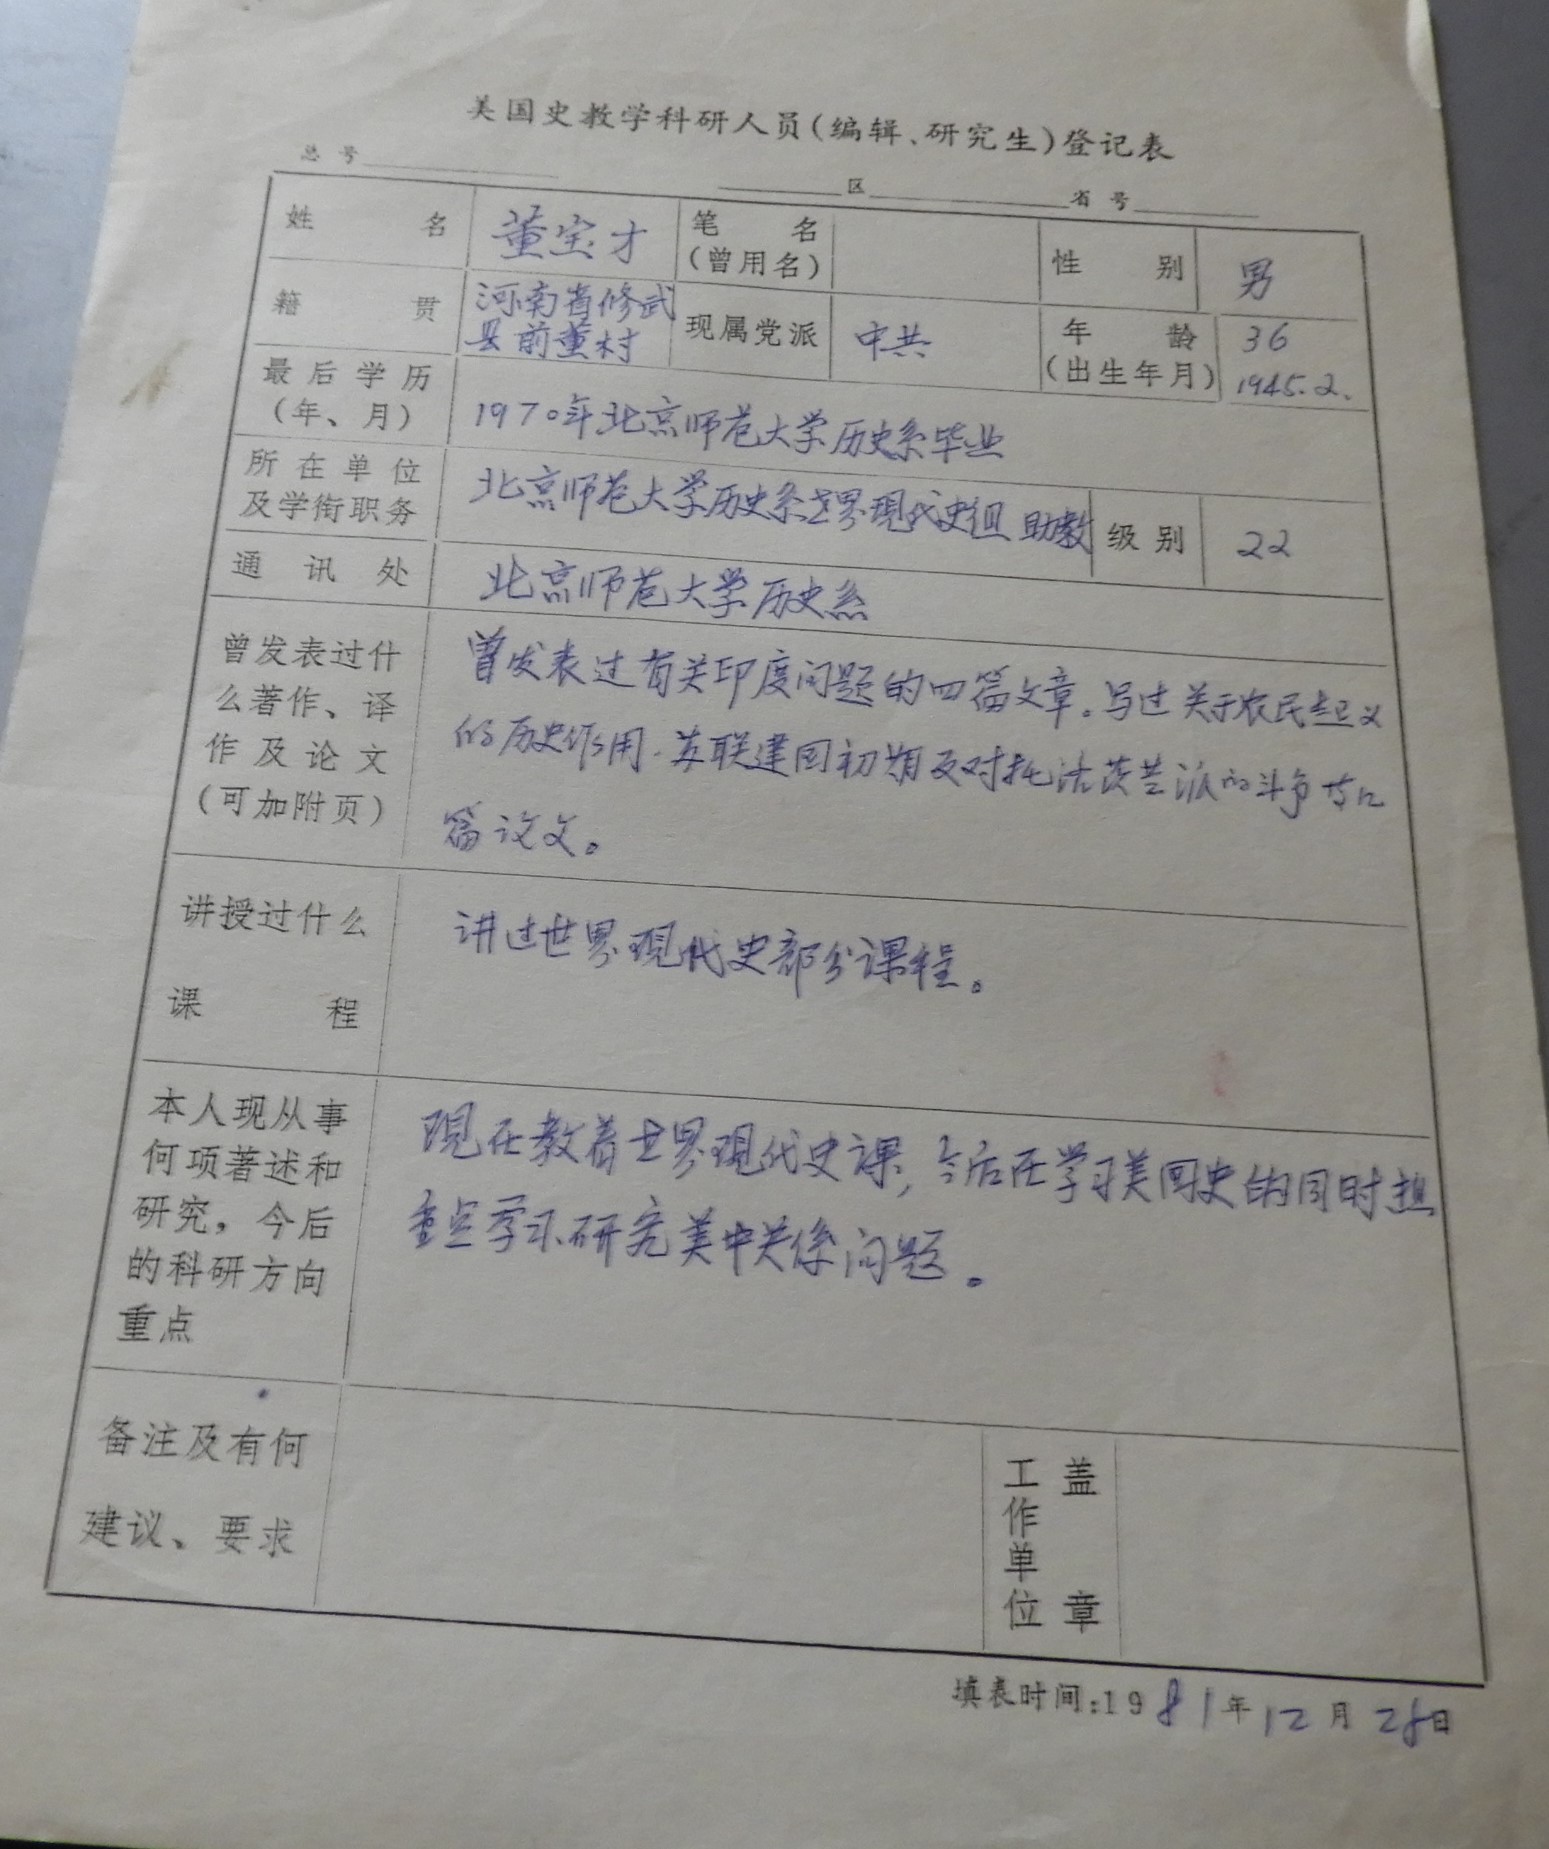 美国史教学科研人员(编辑、研究生)登记表
总号 区 省号
姓名 董宝才 笔名(曾用名) 性别 男
籍贯 河南省修武县前董村 现属党派 中共 年龄(出生年月) 36 1945.2.
最后学历(年、月) 1970年北京师范大学历史系毕业
所在单位及学衔职务 北京师范大学历史系世界现代史组 助教 级别 22
通讯处 北京师范大学历史系
曾发表过什么著作、译作及论文(可加附页)
曾发表过有关印度问题的四篇文章。写过关于农民起义
的历史作用、苏联建国初期反对托洛茨基派的斗争等几
篇论文。
讲授过什么
课程
讲过世界现代史部分课程。
本人现从事何项著述和研究,今后的科研方向重点
现在教着世界现代史课,今后在学习美国史的同时想
重点学习、研究美中关係问题。
备注及有何
建议、要求
工作单位盖章
填表时间:1981年12月28日